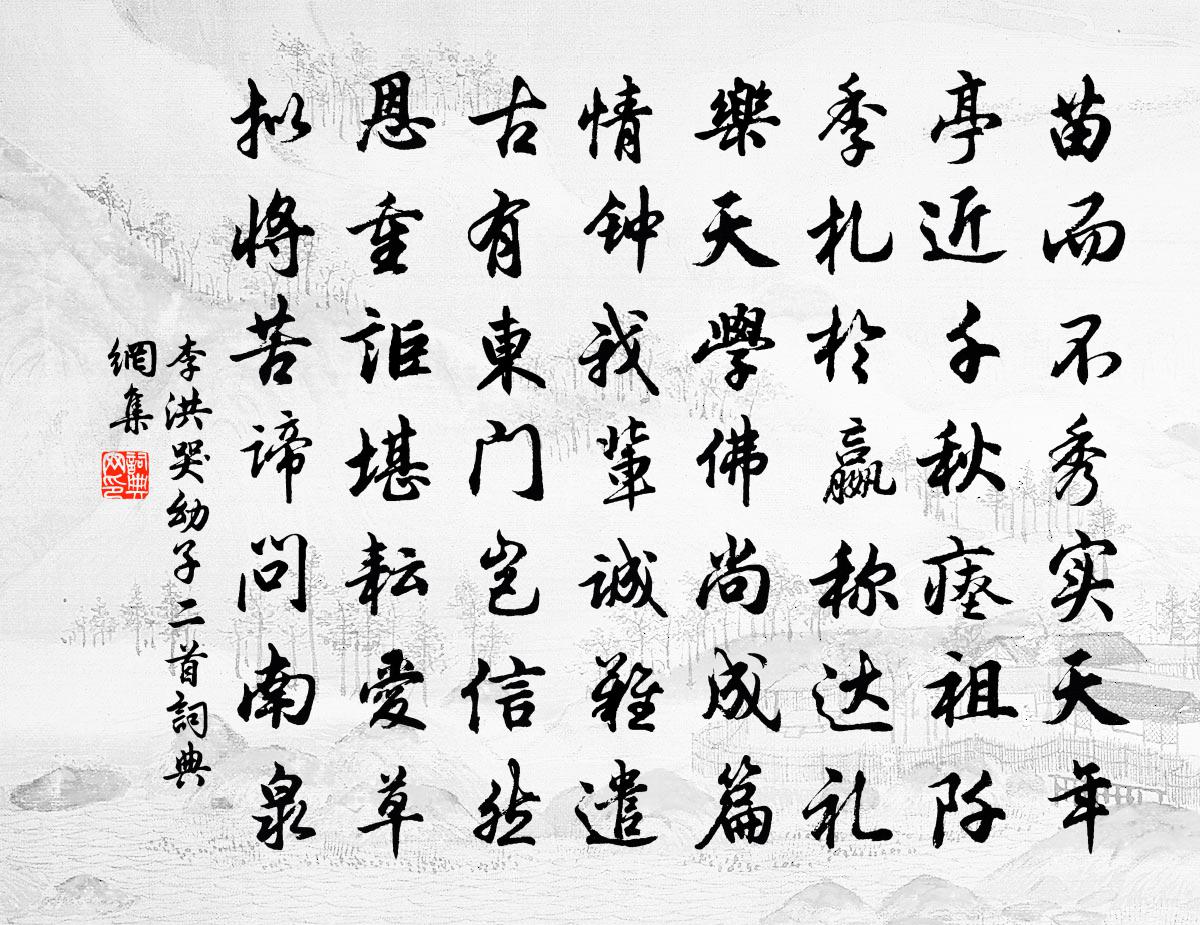 苗而不秀实天年
亭近千秋瘗祖阡
季札於嬴称达礼
樂天學佛尚成篇
情钟我輩誠難遣
古有東门岂信然
恩重詎堪耘愛草
拟將苦諦问南泉
李洪哭幼子二首詞典
網集
詞典網印